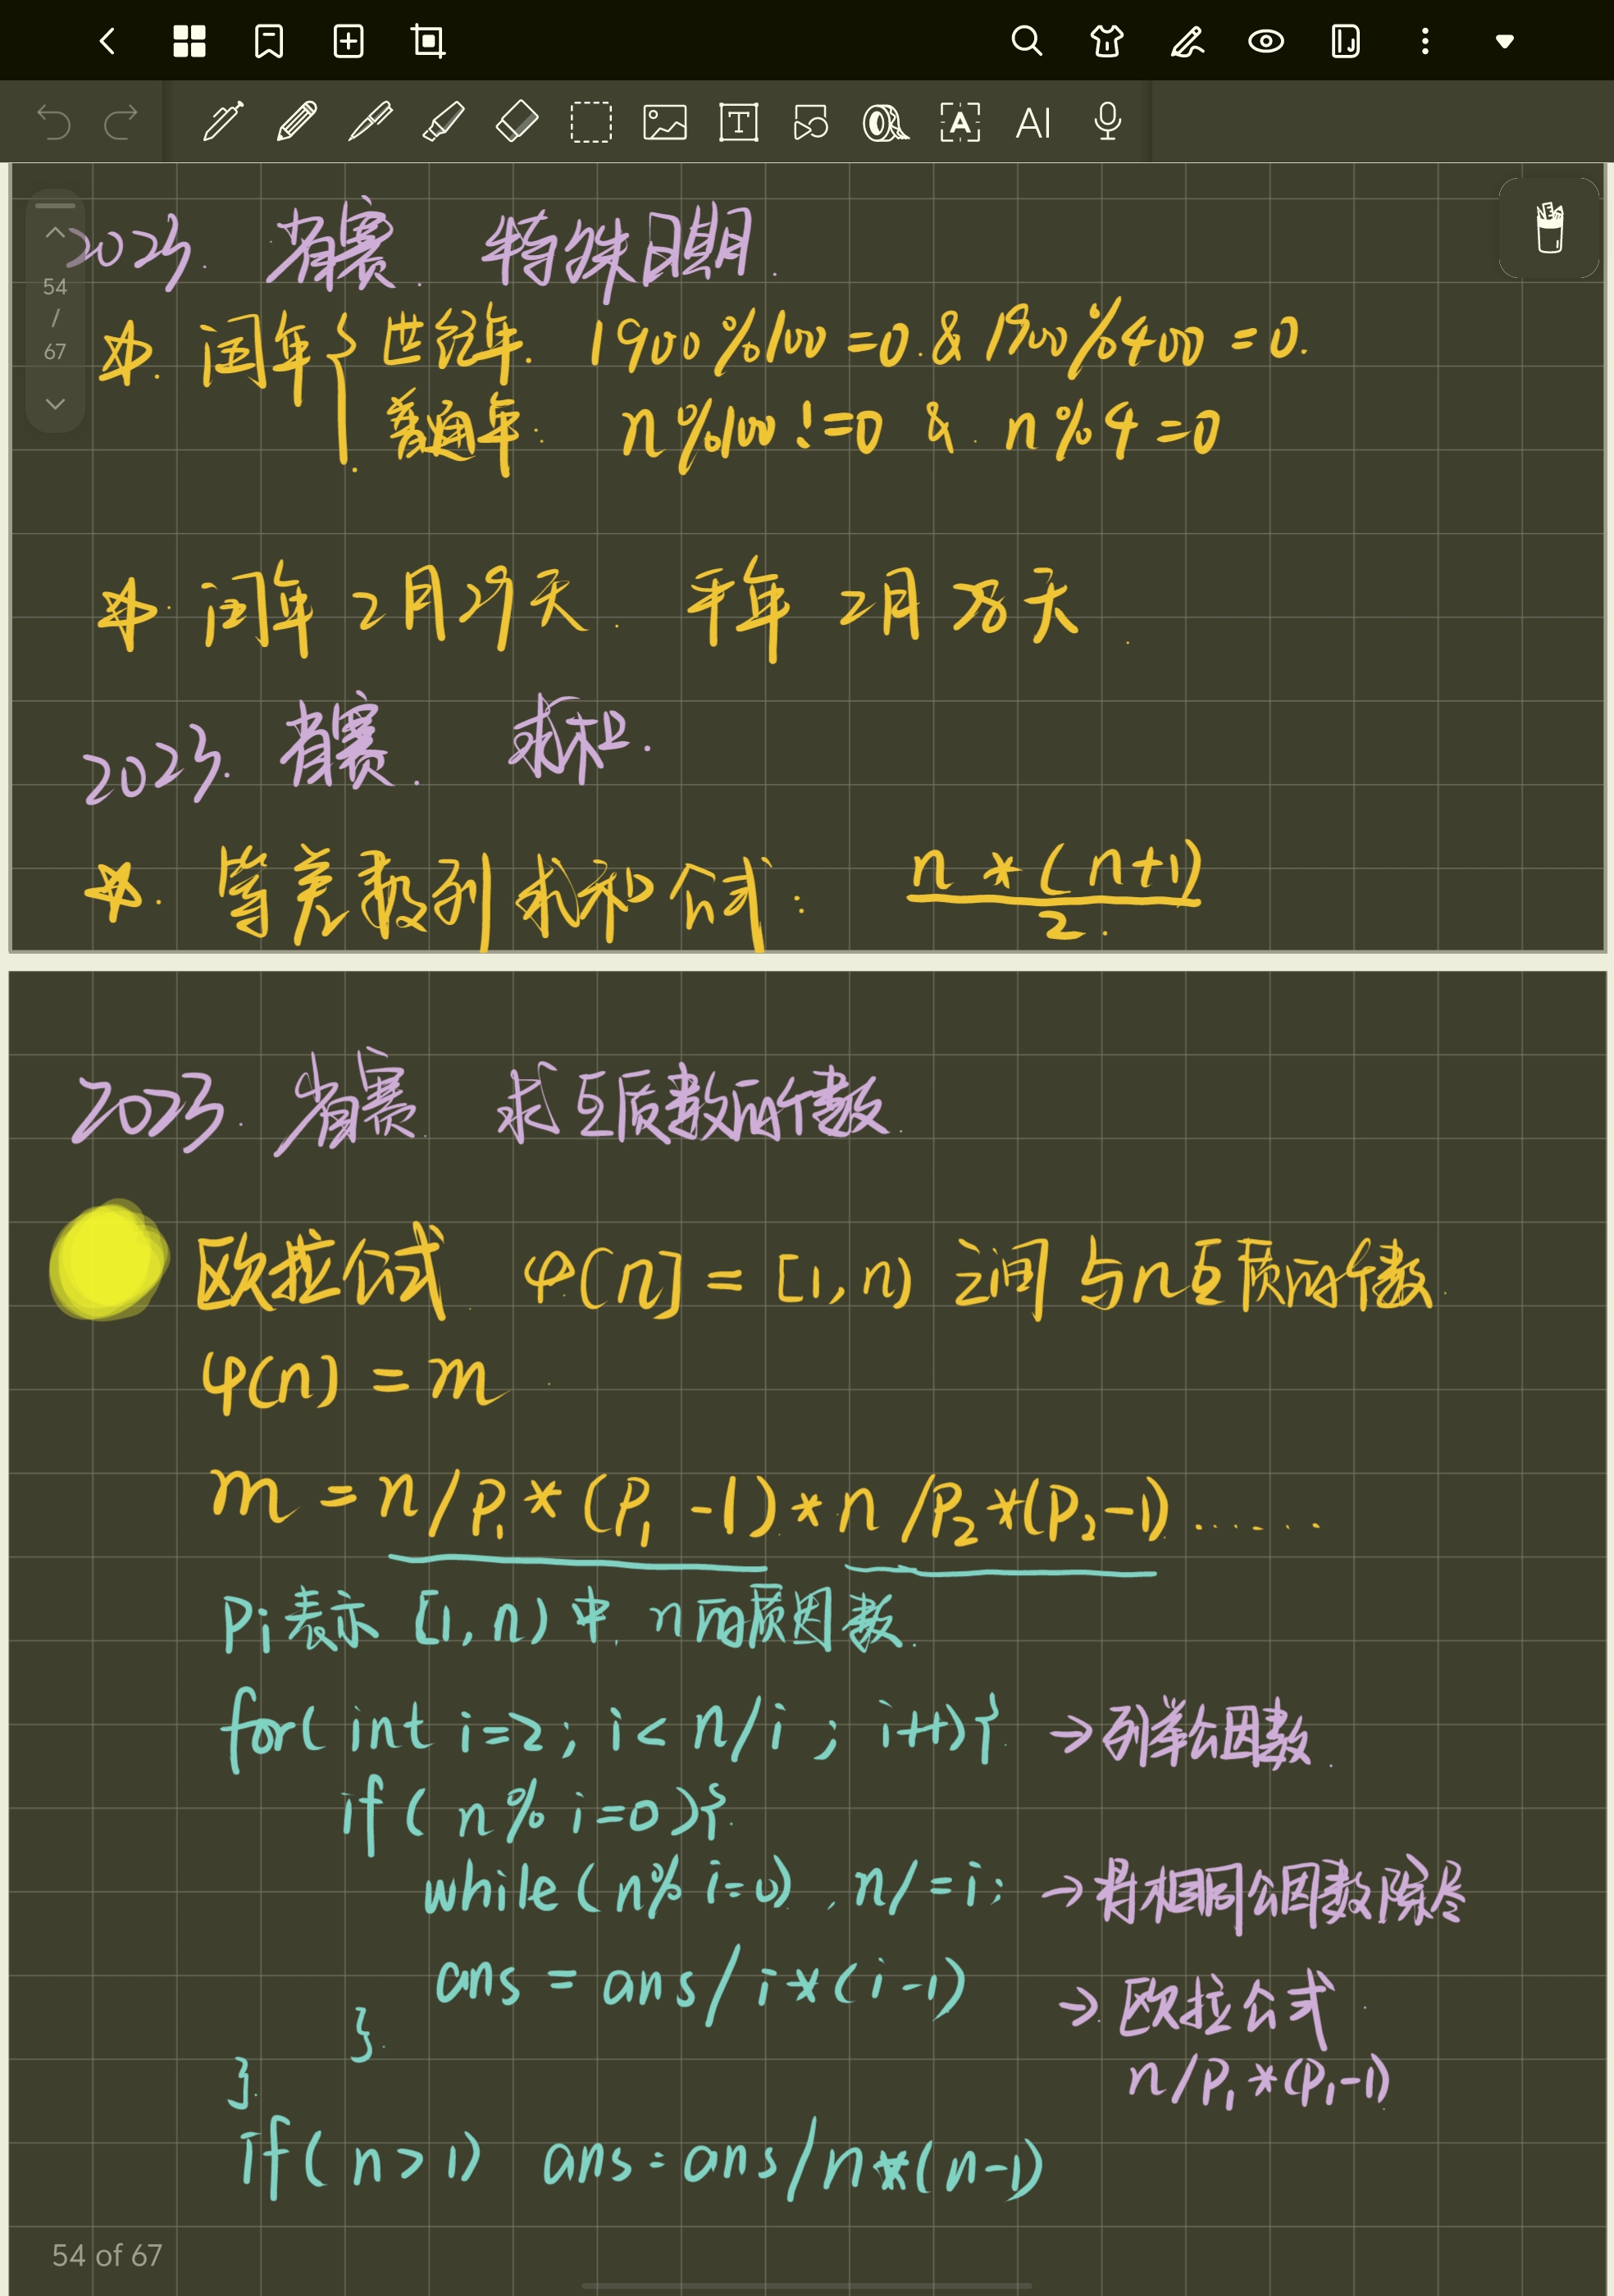 AI
54
/
67
2023. 省赛. 特殊日期.
☆. 闰年{ 世纪年. 1900%100=0.&1900%400=0.
普通年: n%100!=0 & n%4=0
☆. 闰年 2月29天. 平年 2月28天.
2023. 省赛. 求和.
☆. 等差数列求和公式: n*(n+1)/2.
2023. 省赛. 求互质数的个数.
欧拉公式. φ(n] = [1,n) 之间与n互质的个数.
φ(n) = m
m = n/P₁*(P₁-1)*n/P₂*(P₂-1)......
Pi表示 [1,n)中. n的质因数.
for( int i=2; i< n/i ; i++){ →列举公因数.
if( n% i=0){
while( n% i=0) . n/=i; →将相同公因数除尽
ans = ans/i*(i-1) → 欧拉公式
}
n/P₁*(P₁-1)
}
if( n>1) ans=ans/n*(n-1)
54 of 67